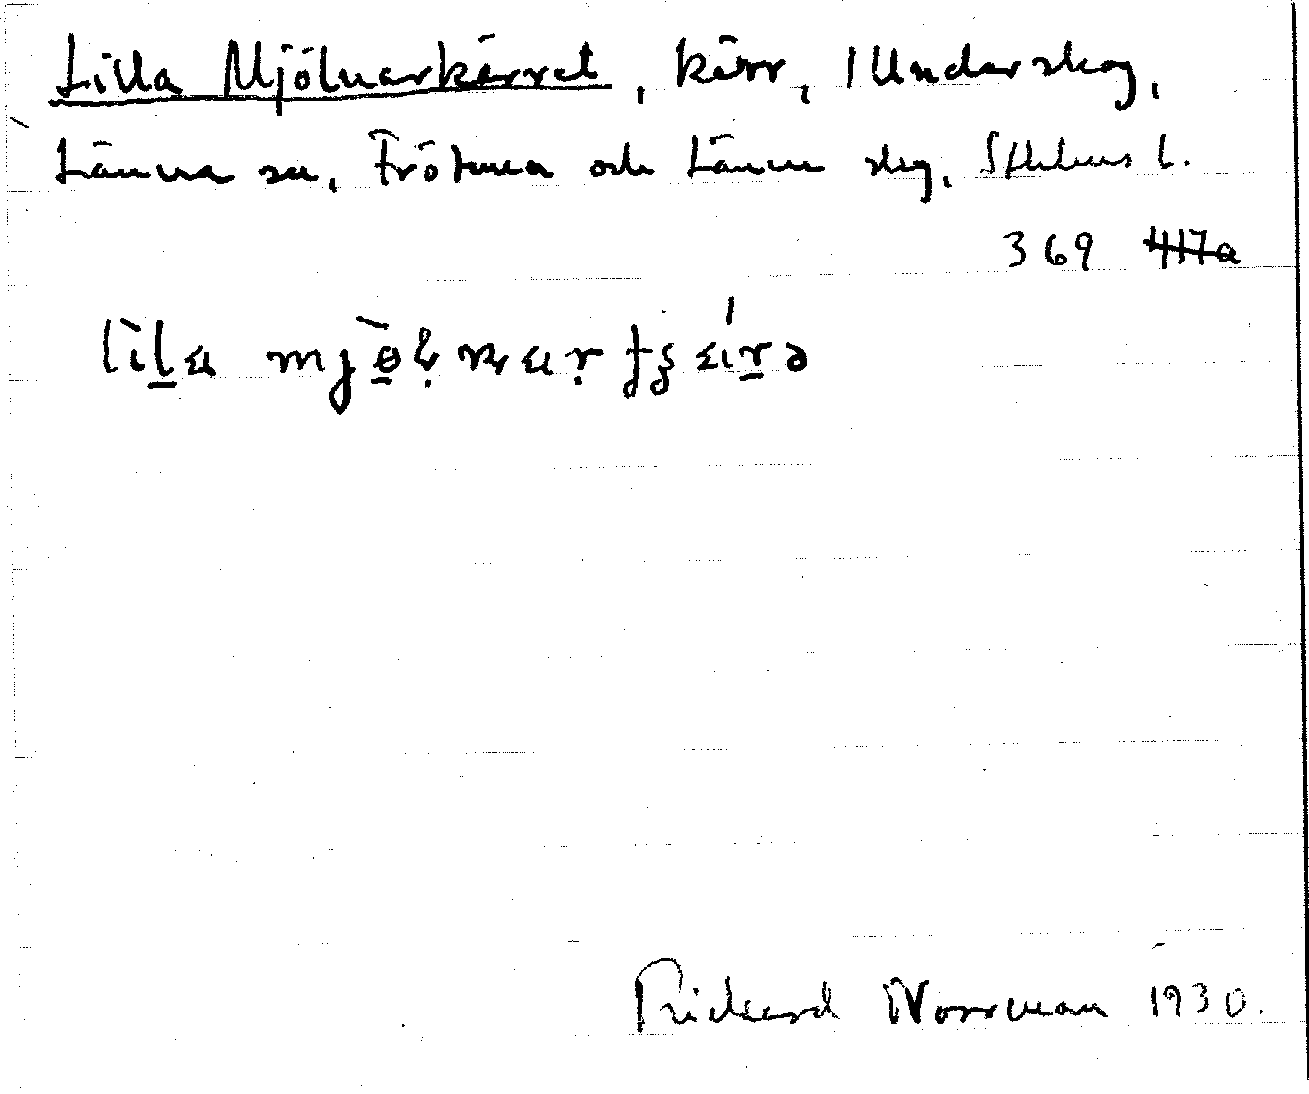 Lilla Mjölnarkärret, kärr, Underskog,
Länna sn, Frötuna och Länna skg, Sthlms l.
369 417a
Rickard Norrman 1930.